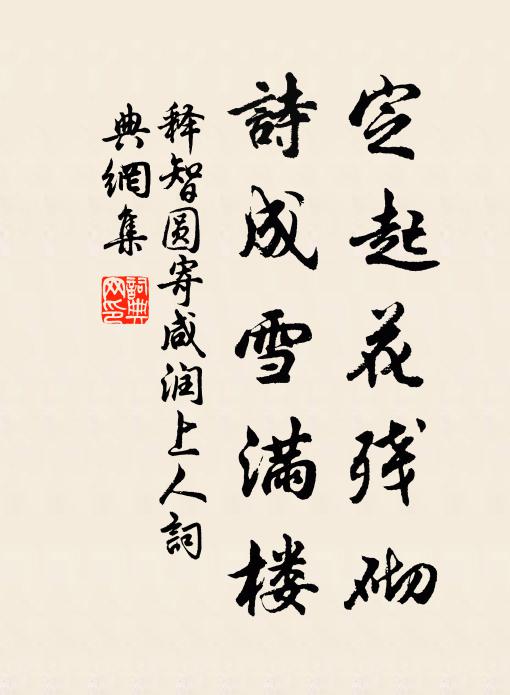 定起花残砌
詩成雪滿楼
释智圆寄咸润上人詞
典網集
詞典网印